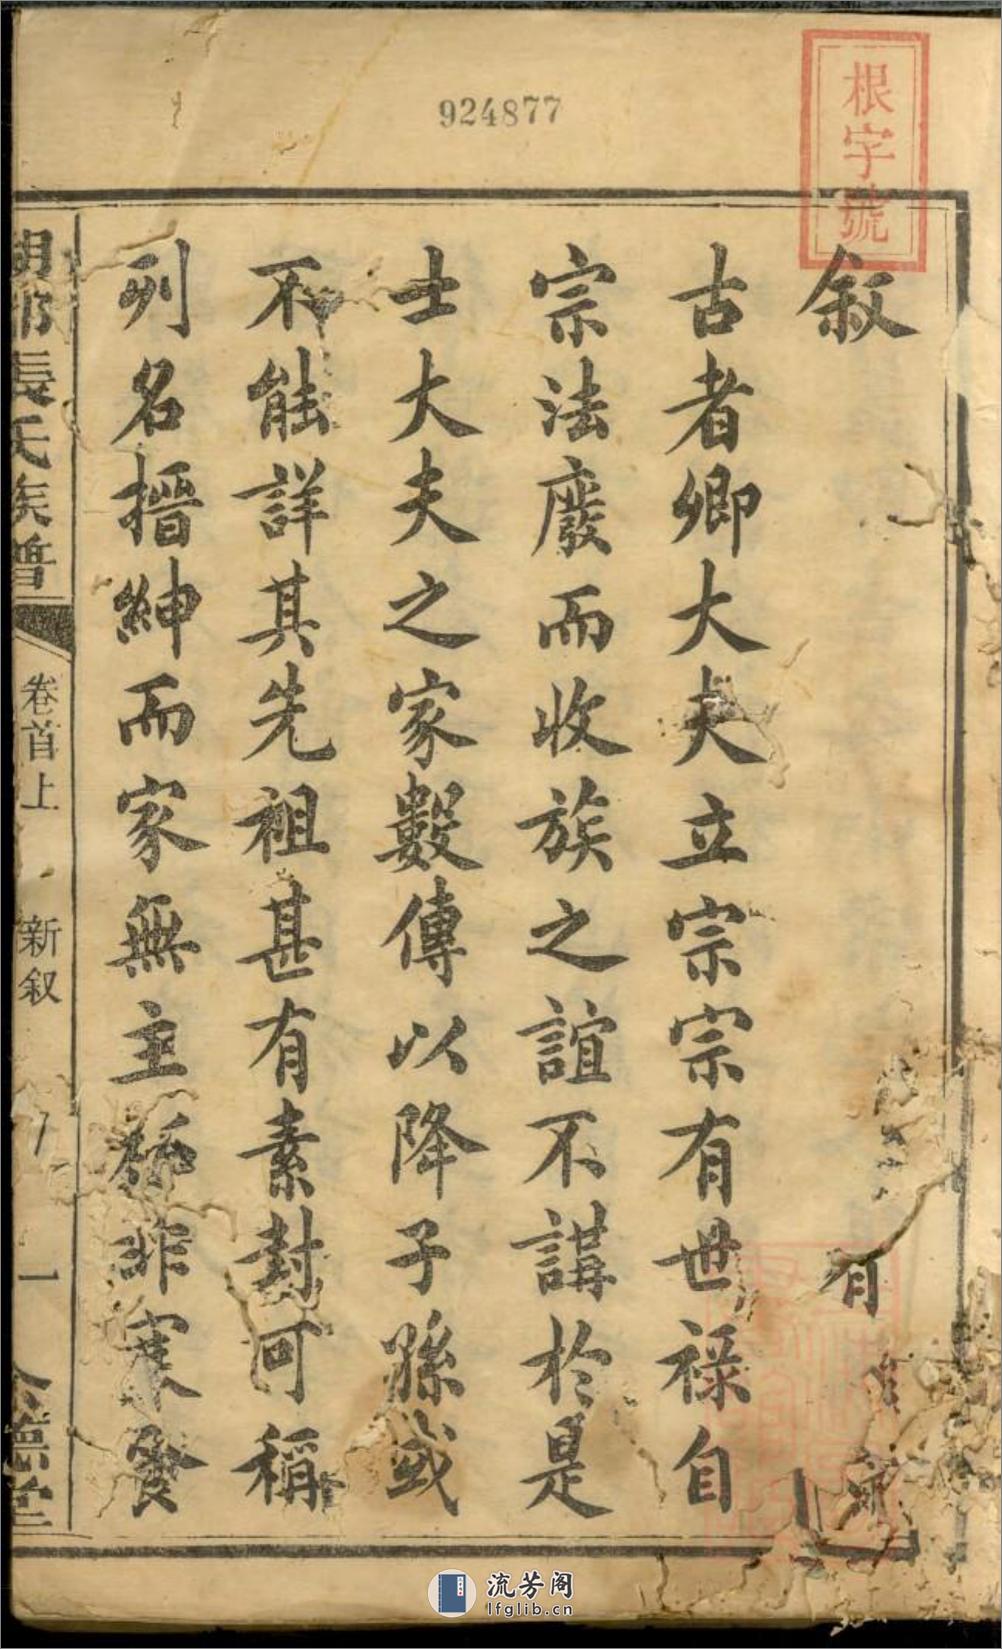 924877
根字號
叙
古者卿大夫立宗宗有世祿自
宗法廢而收族之誼不講於是
士大夫之家數傳以降子孫或
不能詳其先祖甚有素封可稱
列名搢紳而家無主祏非寒食
張氏族譜
卷首上
新叙
一
德堂
流芳阁
lfglib.cn